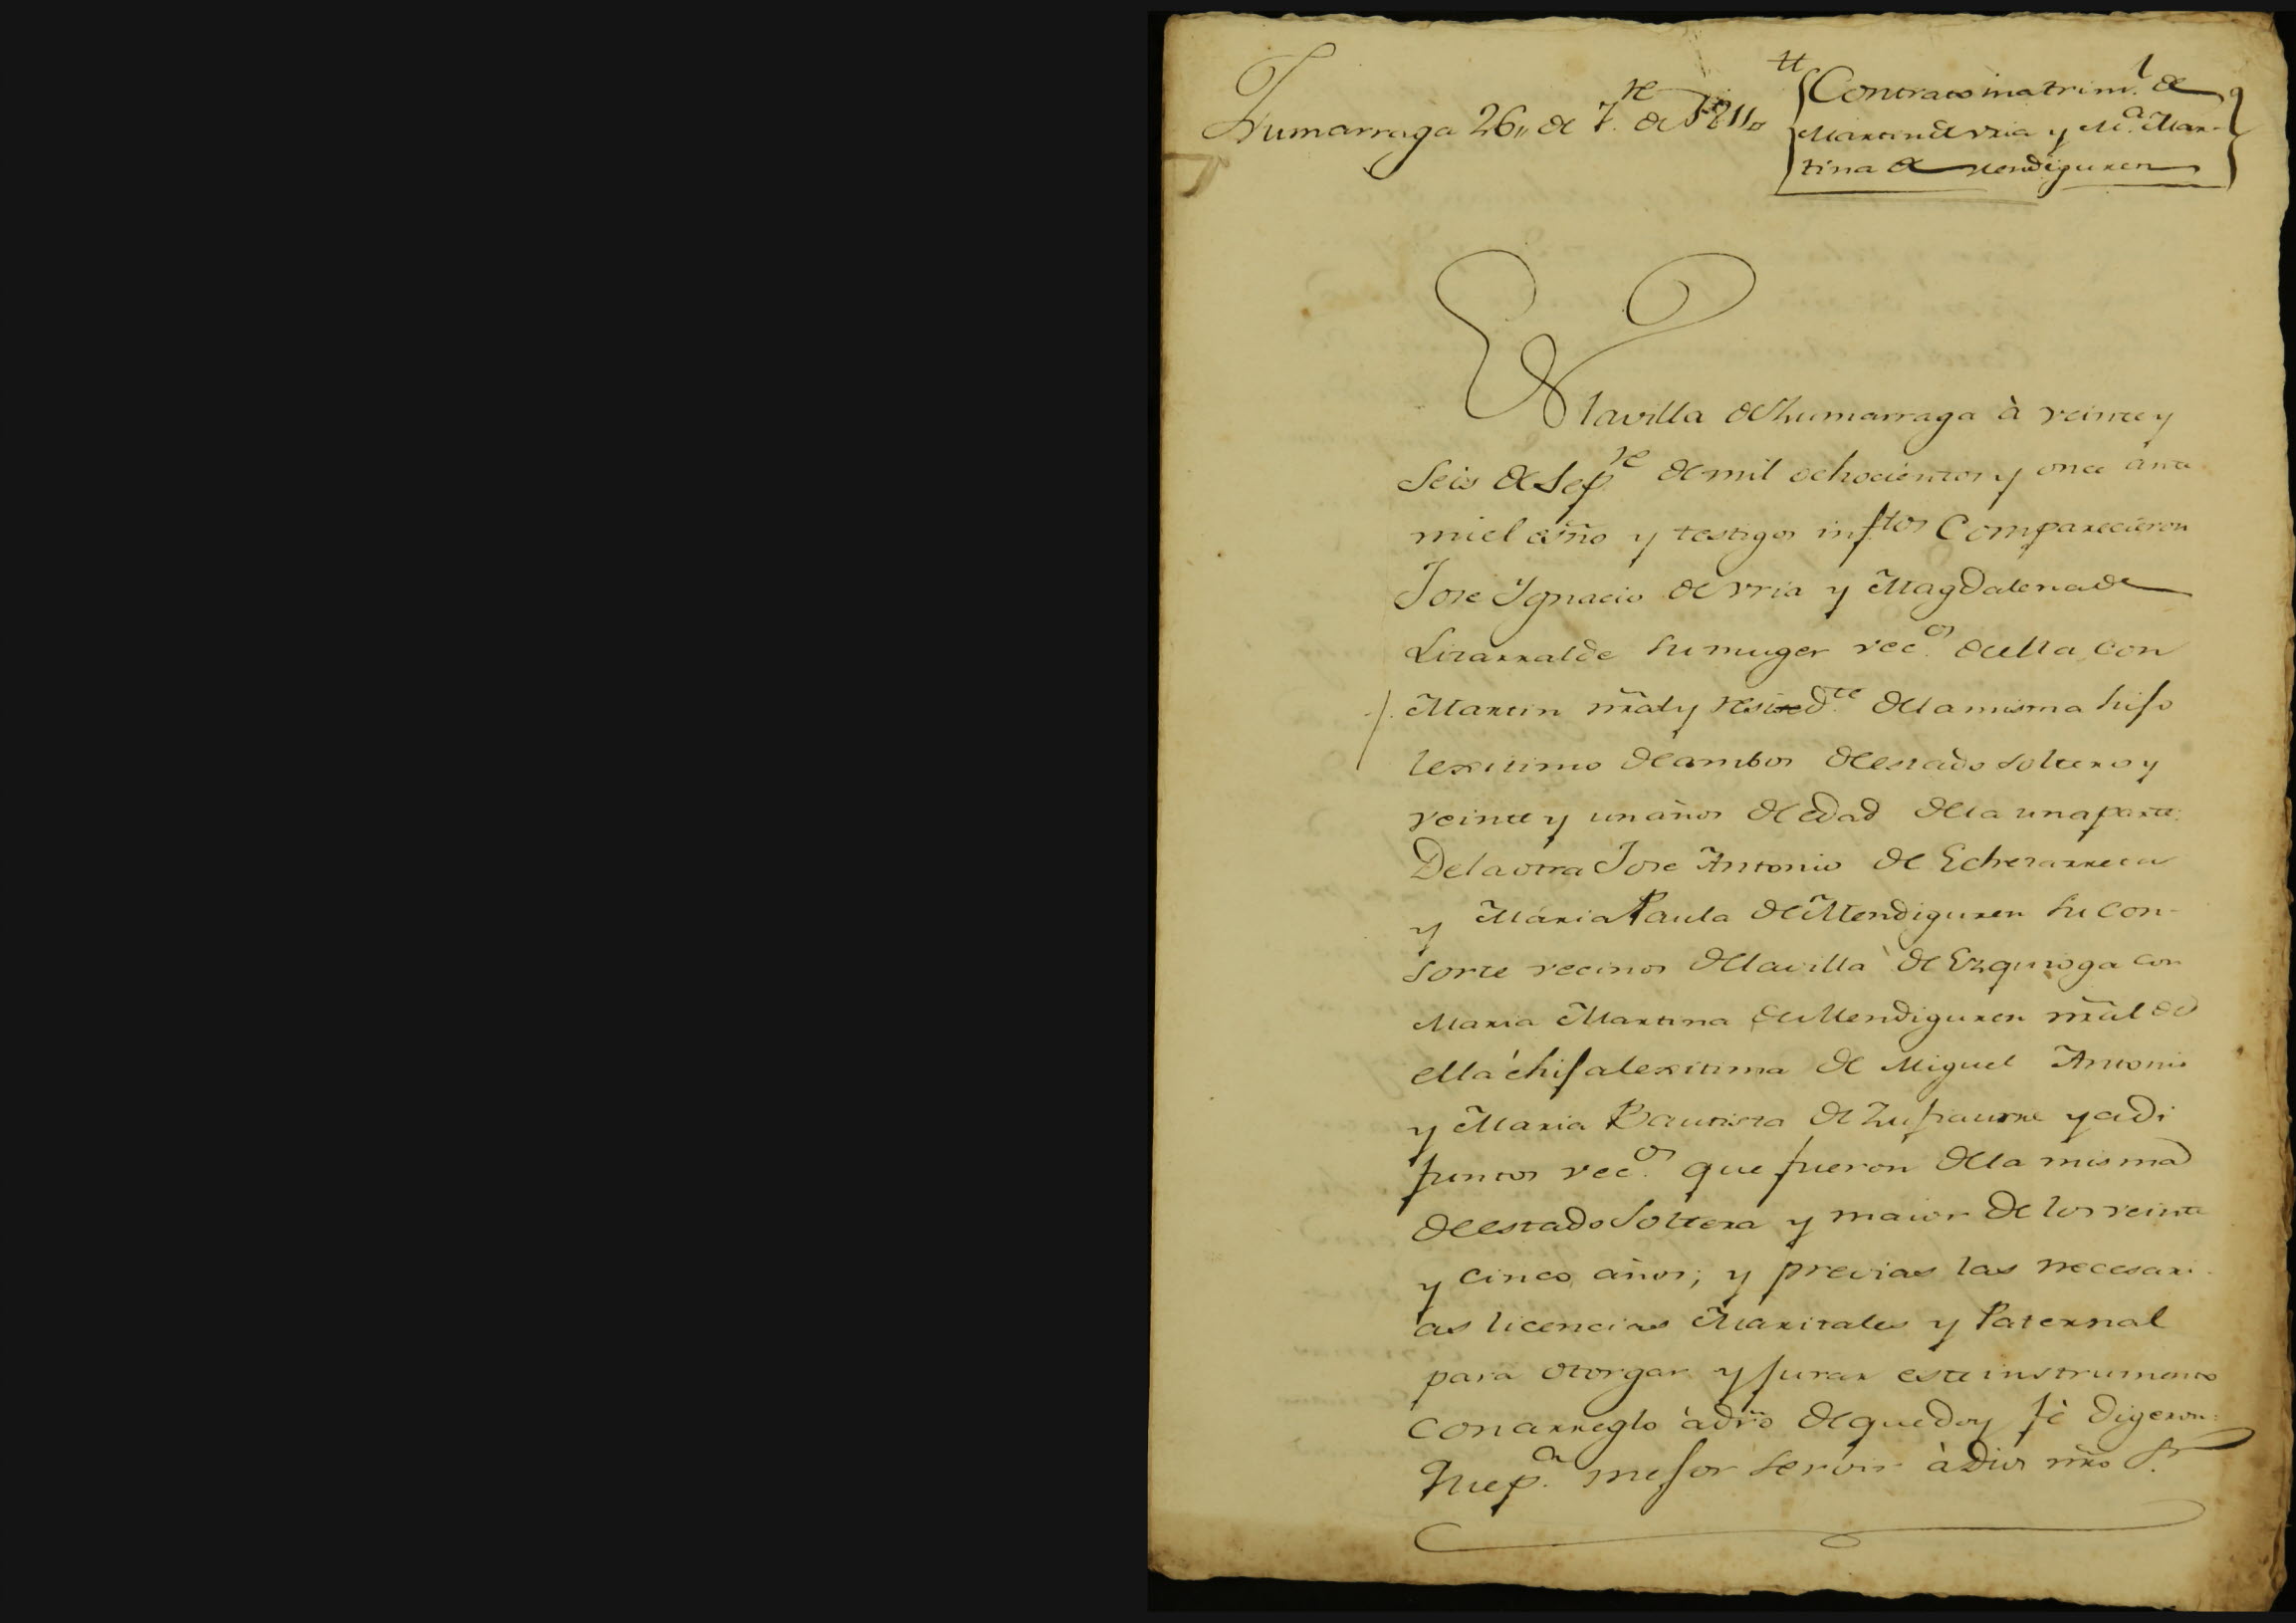 Zumarraga 26,, de 7.re de 1811,,
tt
Contrato matrim.l de
Martin de Vria y M.a Mar-
tina de Mendiguren
EN la villa de Zumarraga à veinte y
Seis de Sep.re de mil ochocientos y once ante
mi el esño y testigos inftos Comparecieron
Jose Ygnacio de Vria y Magdalena de
Lizarralde su muger vec.os de ella con
Martin nãal y resid.te de la misma hijo
lexitimo de ambos de estado soltero y
veinte y un años de edad de la una parte:
De la otra Jose Antonio de Echezarreta
y Maria Paula de Mendiguren su con-
sorte vecinos de la villa de Ezquioga con
Maria Martina de Mendiguren nãal de
ella è hija lexitima de Miguel Antonio
y Maria Bautista de Zufiaurre ya di
funtos vec.os que fueron de la misma
de estado Soltera y maior de los veinte
y cinco años; y previas las necesari-
as licencias Maritales y Paternal
para otorgar y jurar este instrumento
con arreglo à dr̃o de que doy fè digeron:
Que p.a mejor servir à Dios nr̃o S.r